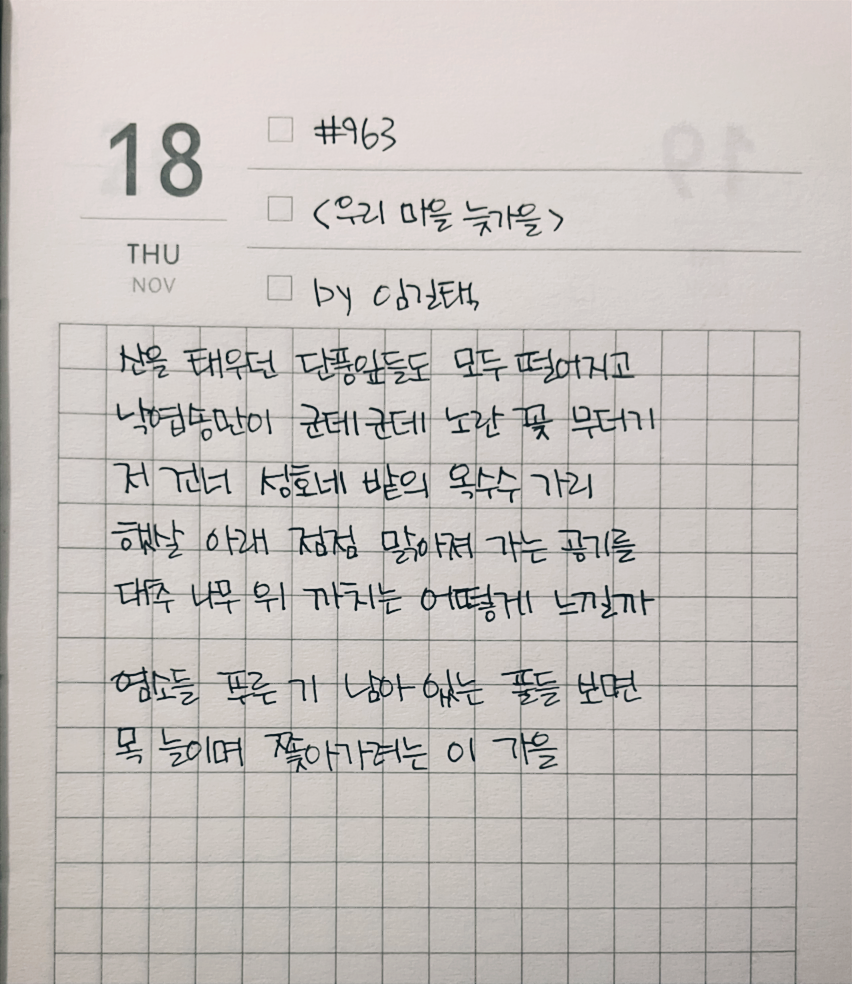 18
THU
NOV
#963
<우리 마을 늦가을>
by 임길택
산을 태우던 단풍잎들도 모두 떨어지고
낙엽송만이 군데군데 노란 꽃 무더기
저 건너 성호네 밭의 옥수수 가리
햇살 아래 점점 맑아져 가는 공기를
대추 나무 위 까치는 어떻게 느낄까
염소들 푸른 기 남아 있는 풀들 보면
목 늘이며 쫓아가려는 이 가을